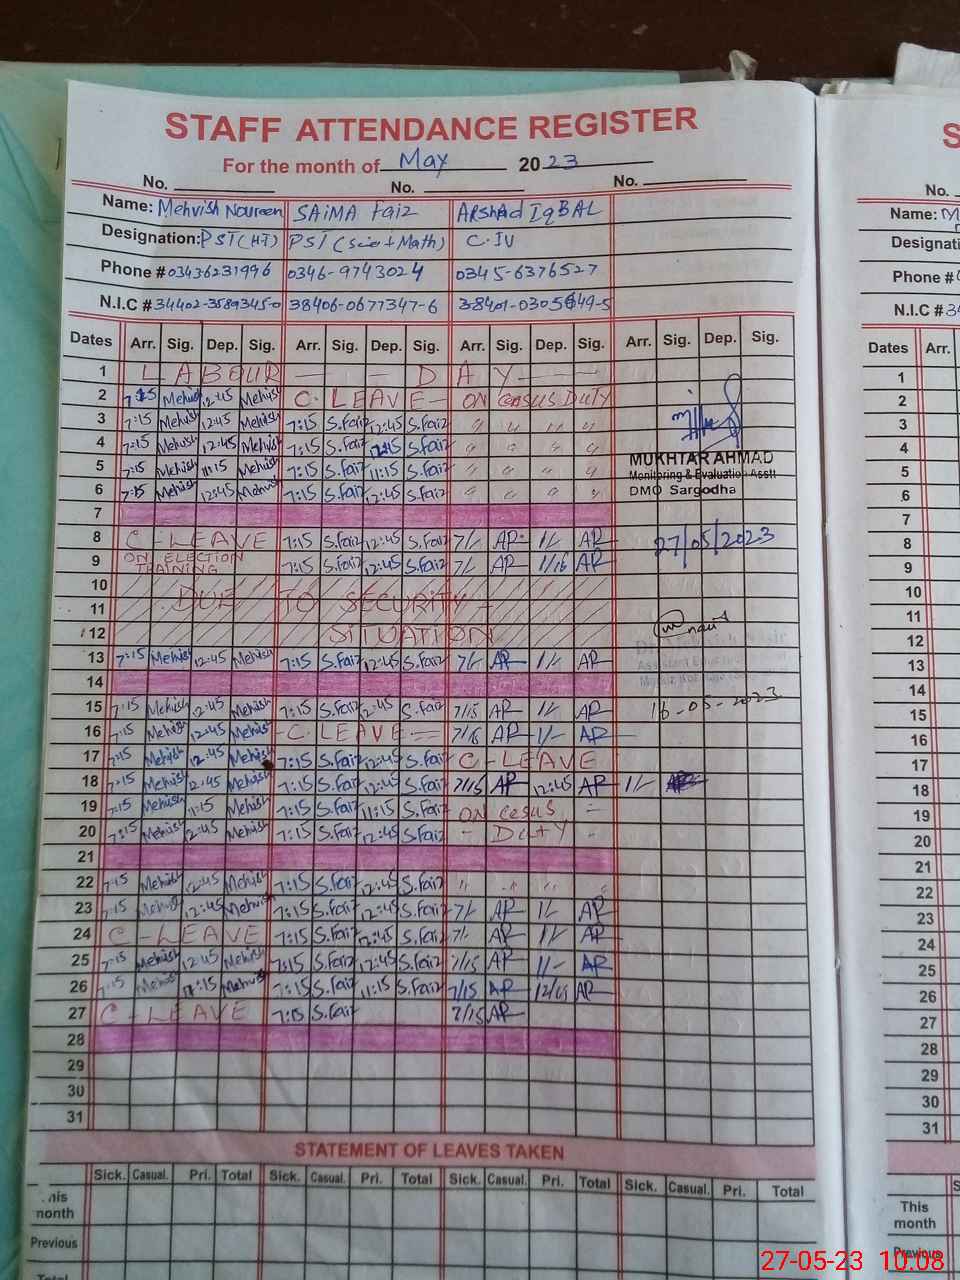 STAFF ATTENDANCE REGISTER
For the month of May 2023
No. No. No.
Name: Mehvish Noureen SAIMA Faiz ARShAd IqBAL
Designation: PST(HT) PST (Scie+Math) C.IV
Phone # 0343-6231996 0346-9743024 0345-6376527
N.I.C # 34402-3589345-0 38406-0677347-6 38401-0305649-5
Dates Arr. Sig. Dep. Sig. Arr. Sig. Dep. Sig. Arr. Sig. Dep. Sig. Arr. Sig. Dep. Sig.
1 LABOUR - - DAY - -
2 7:15 Mehvish 12:45 Mehvish C. LEAVE - ON Census DUTY
3 7:15 Mehvish 12:45 Mehvish 7:15 S.Faiz 12:45 S.Faiz " " " "
4 7:15 Mehvish 12:45 Mehvish 7:15 S.Faiz 12:45 S.Faiz " " " "
5 7:15 Mehvish 11:15 Mehvish 7:15 S.Faiz 11:15 S.Faiz " " " "
6 7:15 Mehvish 12:45 Mehvish 7:15 S.Faiz 12:45 S.Faiz " " " "
MUKHTAR AHMAD
Monitoring & Evaluation Asstt
DMO Sargodha
7
8 C-LEAVE 7:15 S.Faiz 12:45 S.Faiz 7/- AR 1/- AR 27/05/2023
9 ON ELECTION TRAINING 7:15 S.Faiz 12:45 S.Faiz 7/- AR AR
10
11 DUE TO SECURITY -
12 SITUATION
13 7:15 Mehvish 12:45 Mehvish 7:15 S.Faiz 12:45 S.Faiz 7/- AR 1/- AR
14
15 7:15 Mehvish 12:45 Mehvish 7:15 S.Faiz 12:45 S.Faiz 7/15 AR 1/- AR 16-05-2023
16 7:15 Mehvish 12:45 Mehvish -C. LEAVE - AR 1/- AR
17 7:15 Mehvish 12:45 Mehvish 7:15 S.Faiz 12:45 S.Faiz C-LEAVE
18 7:15 Mehvish 12:45 Mehvish 7:15 S.Faiz 12:45 S.Faiz 7/15 AR 12:45 AR 1/-
19 7:15 Mehvish Mehvish 7:15 S.Faiz 11:15 S.Faiz ON Cesus
20 7:15 Mehvish 12:45 Mehvish 7:15 S.Faiz 12:45 S.Faiz - DUTY "
21
22 7:15 Mehvish 12:45 Mehvish 7:15 S.Faiz 12:45 S.Faiz " " " "
23 7:15 Mehvish 12:45 Mehvish 7:15 S.Faiz 12:45 S.Faiz 7/- AR 1/- AR
24 C-LEAVE 7:15 S.Faiz 12:45 S.Faiz 7/- AR 1/- AR
25 7:15 Mehvish 12:45 Mehvish 7:15 S.Faiz 12:45 S.Faiz 7/15 AR 1/- AR
26 7:15 Mehvish 11:15 Mehvish 7:15 S.Faiz 11:15 S.Faiz 7/15 AR AR
27 C-LEAVE 7:15 S.Faiz 7/15 AR
28
29
30
31
STATEMENT OF LEAVES TAKEN
Sick. Casual. Pri. Total Sick. Casual. Pri. Total Sick. Casual. Pri. Total Sick. Casual. Pri. Total
This month
Previous
Total
No.
Name: M
Designati
Phone #
N.I.C # 34
Dates Arr.
1
2
3
4
5
6
7
8
9
10
11
12
13
14
15
16
17
18
19
20
21
22
23
24
25
26
27
28
29
30
31
This month
Previous
27-05-23 10.08